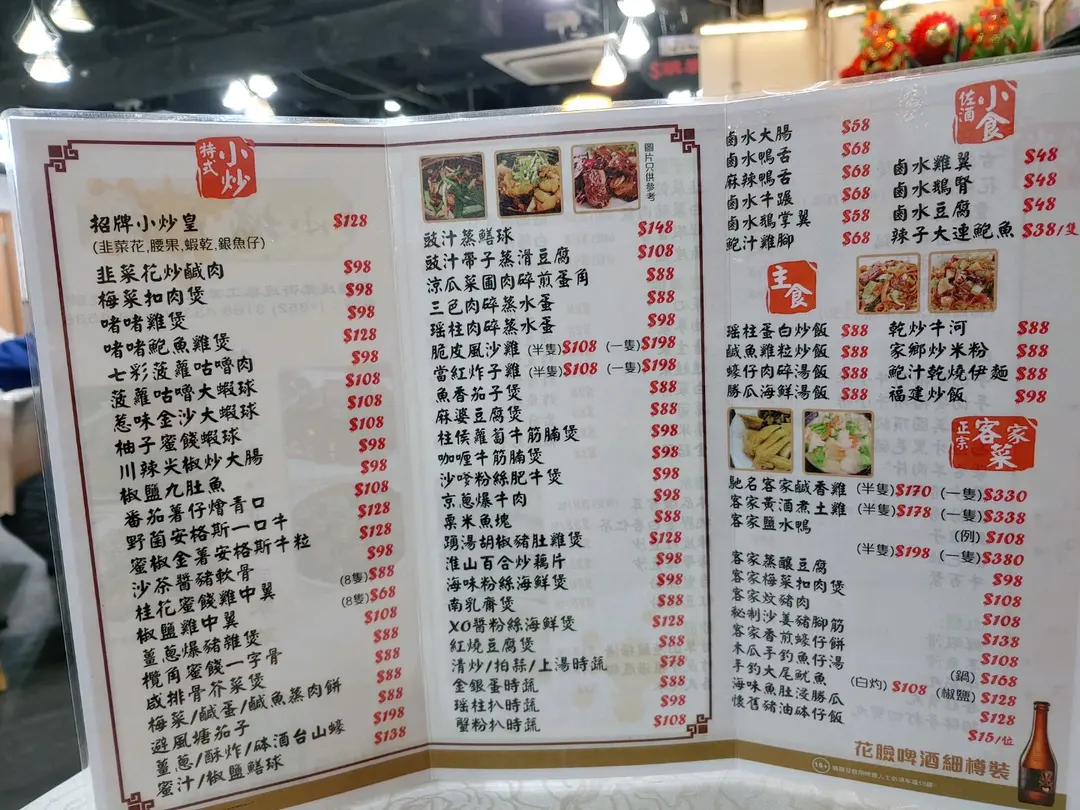 特式小炒
招牌小炒皇 $128
(韭菜花,腰果,蝦乾,銀魚仔)
韭菜花炒鹹肉 $98
梅菜扣肉煲 $98
啫啫雞煲 $98
啫啫鮑魚雞煲 $128
七彩菠蘿咕嚕肉 $98
菠蘿咕嚕大蝦球 $108
惹味金沙大蝦球 $108
柚子蜜餞蝦球 $108
川辣尖椒炒大腸 $98
椒鹽九肚魚 $98
番茄薯仔燴青口 $108
野菌安格斯一口牛 $128
蜜椒金薯安格斯牛粒 $128
沙茶醬豬軟骨 $98
桂花蜜餞雞中翼 (8隻)$88
椒鹽雞中翼 (8隻)$68
薑蔥爆豬雜煲 $108
欖角蜜餞一字骨 $88
咸排骨芥菜煲 $88
梅菜/鹹蛋/鹹魚蒸肉餅 $88
避風塘茄子 $88
薑蔥/酥炸/砵酒台山蠔 $198
蜜汁/椒鹽鱔球 $138
圖片只供參考
豉汁蒸鱔球 $148
豉汁帶子蒸滑豆腐 $108
涼瓜菜圃肉碎煎蛋角 $88
三色肉碎蒸水蛋 $88
瑤柱肉碎蒸水蛋 $88
脆皮風沙雞 (半隻)$108 (一隻)$198
當紅炸子雞 (半隻)$108 (一隻)$198
魚香茄子煲 $88
麻婆豆腐煲 $88
柱侯蘿蔔牛筋腩煲 $98
咖喱牛筋腩煲 $98
沙嗲粉絲肥牛煲 $98
京蔥爆牛肉 $98
粟米魚塊 $88
踴湯胡椒豬肚雞煲 $128
淮山百合炒藕片 $98
海味粉絲海鮮煲 $98
南乳齋煲 $88
XO醬粉絲海鮮煲 $128
紅燒豆腐煲 $88
清炒/拍蒜/上湯時蔬 $78
金銀蛋時蔬 $88
瑤柱扒時蔬 $98
蟹粉扒時蔬 $108
佐酒小食
鹵水大腸 $58
鹵水鴨舌 $68
麻辣鴨舌 $68
鹵水牛𦟌 $68
鹵水鵝掌翼 $58
鮑汁雞腳 $68
鹵水雞翼 $48
鹵水鵝腎 $48
鹵水豆腐 $48
辣子大連鮑魚 $38/隻
主食
瑤柱蛋白炒飯 $88
鹹魚雞粒炒飯 $88
蠔仔肉碎湯飯 $88
勝瓜海鮮湯飯 $88
乾炒牛河 $88
家鄉炒米粉 $88
鮑汁乾燒伊麵 $88
福建炒飯 $98
正宗客家菜
馳名客家鹹香雞 (半隻)$170 (一隻)$330
客家黃酒煮土雞 (半隻)$178 (一隻)$338
客家鹽水鴨 (例)$108
(半隻)$198 (一隻)$380
客家蒸釀豆腐 $98
客家梅菜扣肉煲 $108
客家炆豬肉 $108
秘制沙姜豬腳筋 $138
客家香煎蠔仔餅 $108
木瓜手釣魚仔湯 (鍋)$168
手釣大尾魷魚 (白灼)$108 (椒鹽)$128
海味魚肚浸勝瓜 $128
懷舊豬油砵仔飯 $15/位
花臉啤酒細樽裝
18+